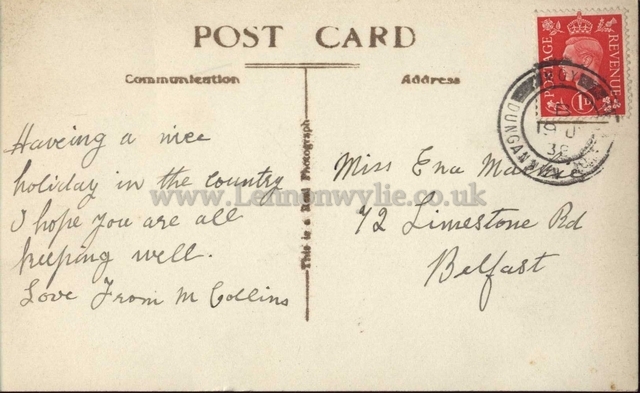 POST CARD
Communication
Address
POSTAGE
REVENUE
1D
DUNGANNON
19 JU
38
Haveing a nice
holiday in the country
I hope you are all
keeping well.
Love From M Collins
This is a Real Photograph
Miss Ena
72 Limestone Rd
Belfast
www.Lennonwylie.co.uk